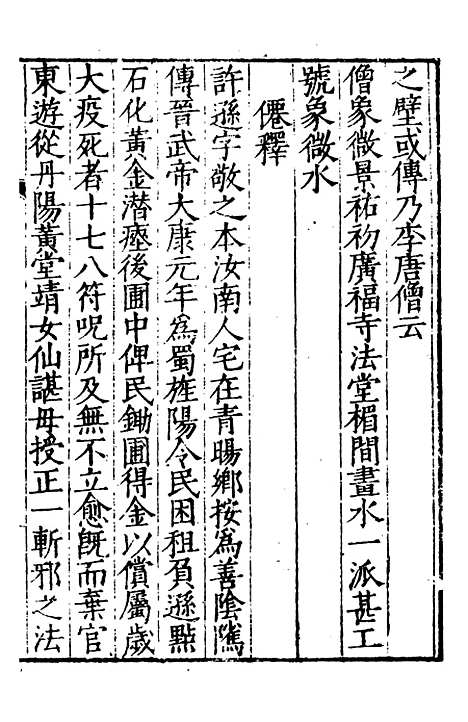 之壁或傳乃李唐僧云
僧象微景祐初廣福寺法堂楣間畫水一派甚工
號象微水
僊釋
許遜字敬之本汝南人宅在青暘鄉按為善陰隲
傳晉武帝大康元年為蜀旌陽令民困租負遜點
石化黃金潛瘞後圃中俾民鋤圃得金以償屬歲
大疫死者十七八符呪所及無不立愈旣而棄官
東遊從丹陽黃堂靖女仙諶母授正一斬邪之法